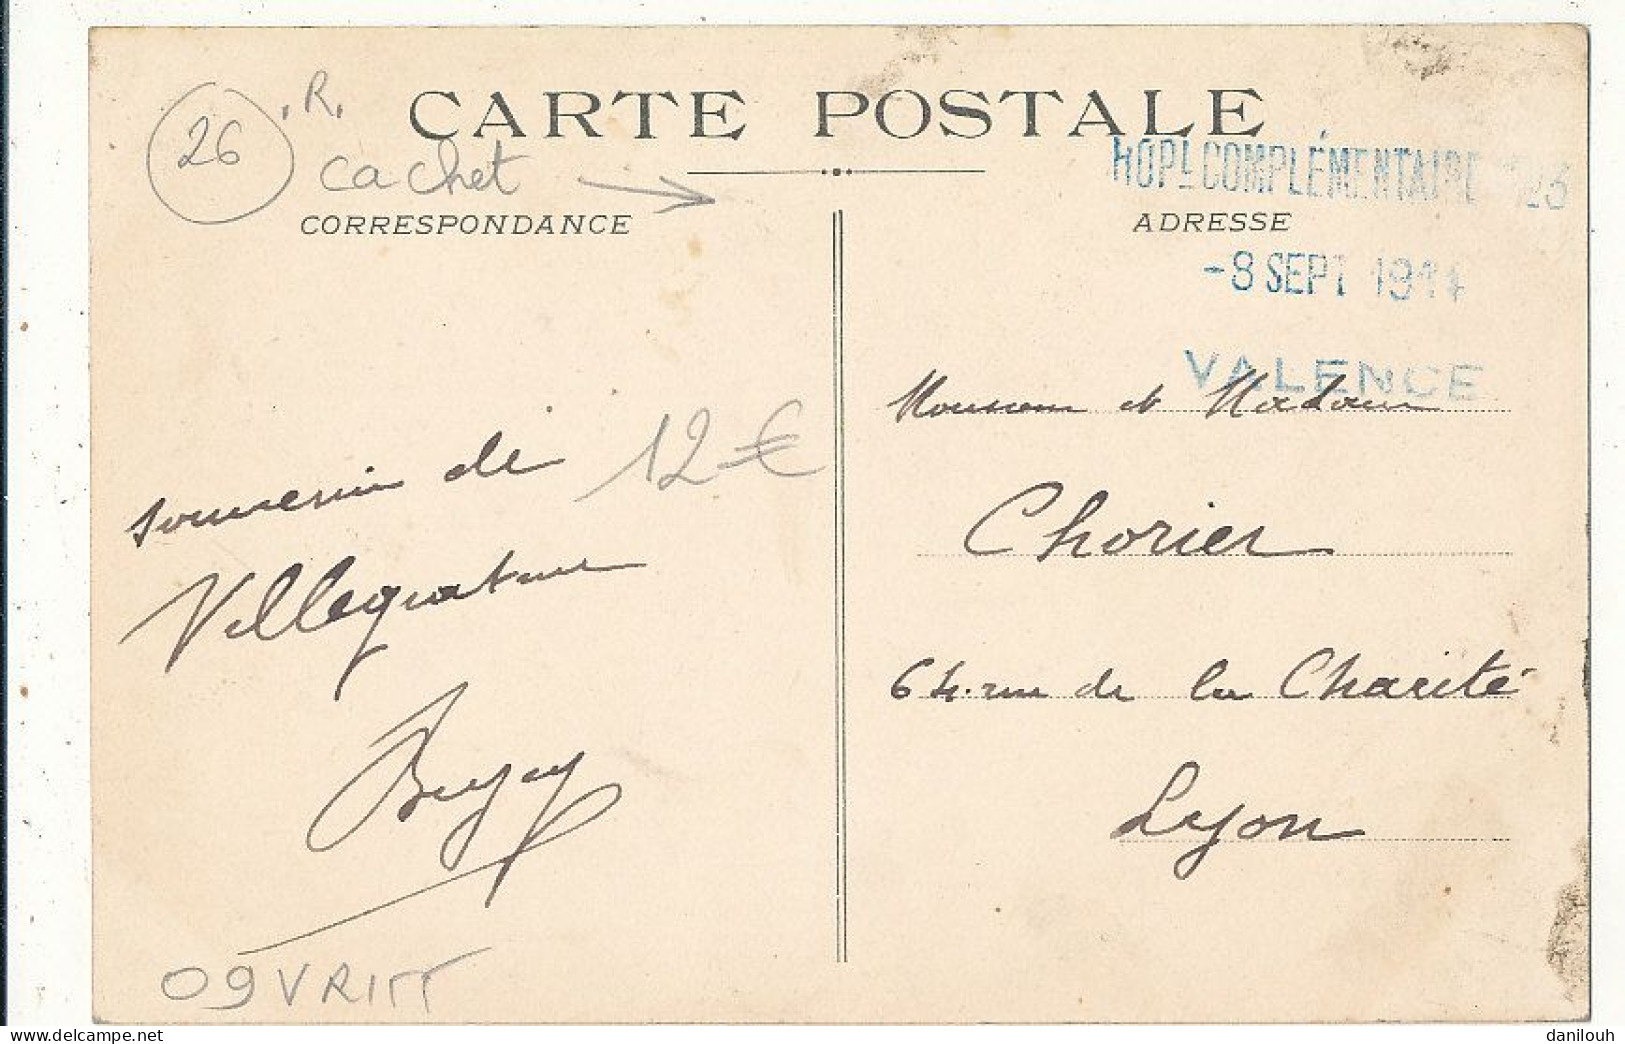 CARTE POSTALE
26
.R.
cachet
CORRESPONDANCE
ADRESSE
HOPL COMPLÉMENTAIRE
-8 SEPT 1914
VALENCE
souvenir de
Villegiature
12 €
Monsieur et Madame
Chorier
64. rue de la Charité
Lyon
09VRITT
delcampe.net
danilouh